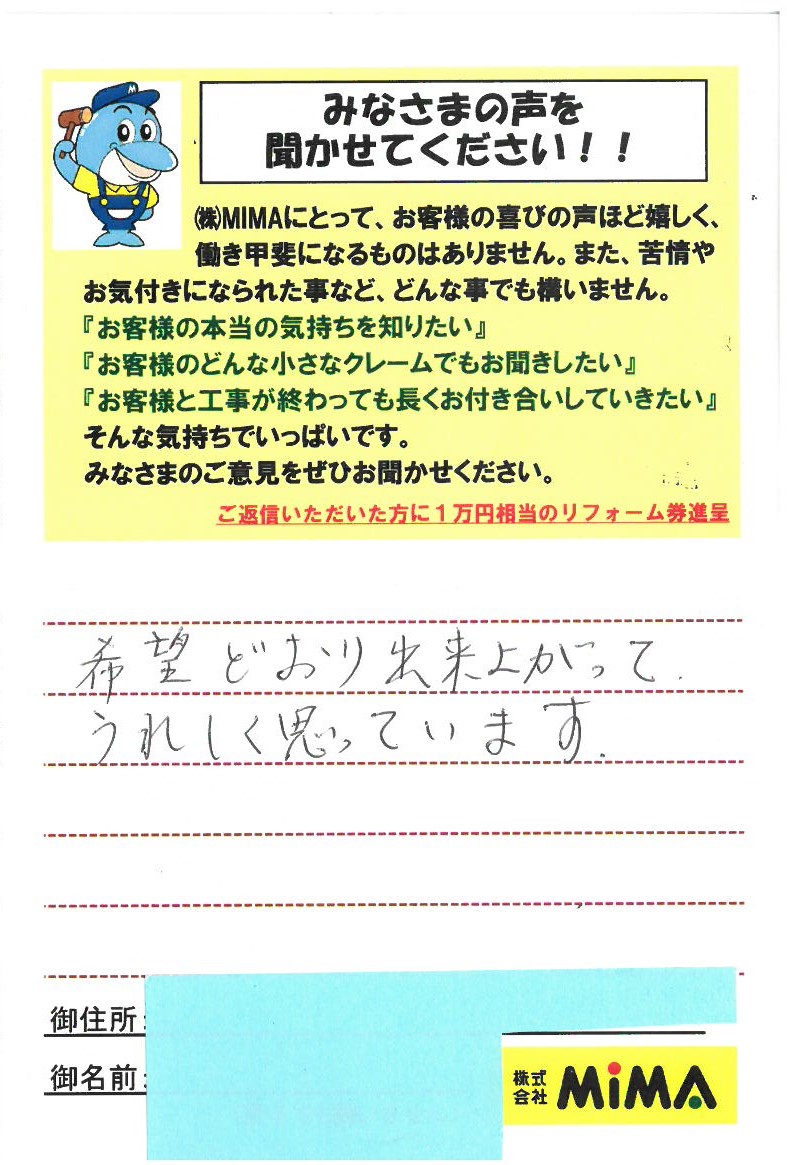 みなさまの声を
聞かせてください！！
㈱MIMAにとって、お客様の喜びの声ほど嬉しく、
働き甲斐になるものはありません。また、苦情や
お気付きになられた事など、どんな事でも構いません。
『お客様の本当の気持ちを知りたい』
『お客様のどんな小さなクレームでもお聞きしたい』
『お客様と工事が終わっても長くお付き合いしていきたい』
そんな気持ちでいっぱいです。
みなさまのご意見をぜひお聞かせください。
ご返信いただいた方に１万円相当のリフォーム券進呈
希望どおり出来上がって.
うれしく思っています.
御住所:
御名前:
株式
会社 MiMA